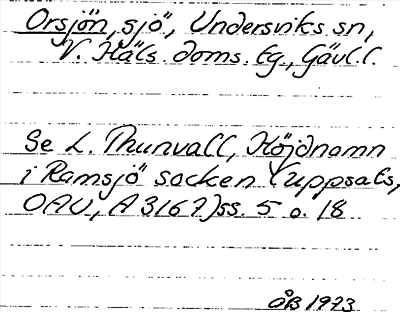 Orsjön, sjö, Undersviks sn,
V. Häls. doms. tg, Gävl.l.
Se L. Thunvall, Höjdnamn
i Ramsjö socken (Uppsats,
OAU, A 3167) ss. 5 o. 18
ÅB 1973